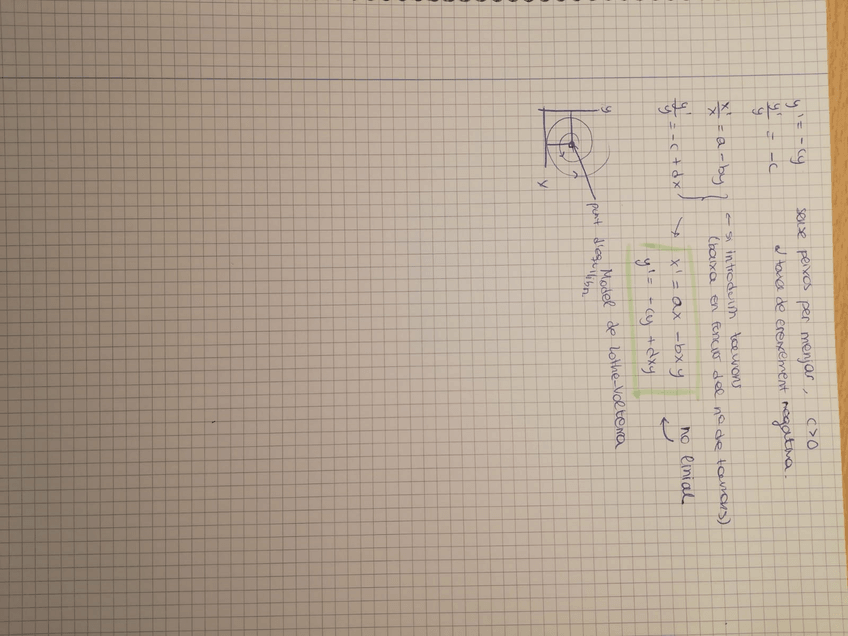 y' = -cy   sense peixos per menjar, c>0
y'/y = -c   taxa de creixement negativa.
x'/x = a - by } ← si introduïm taurons
(baixa en funció del nº de taurons)
y'/y = -c + dx } → x' = ax - bxy   no linial
y' = -cy + dxy
y
x
punt d'equilibri
Model de Lotka-Volterra